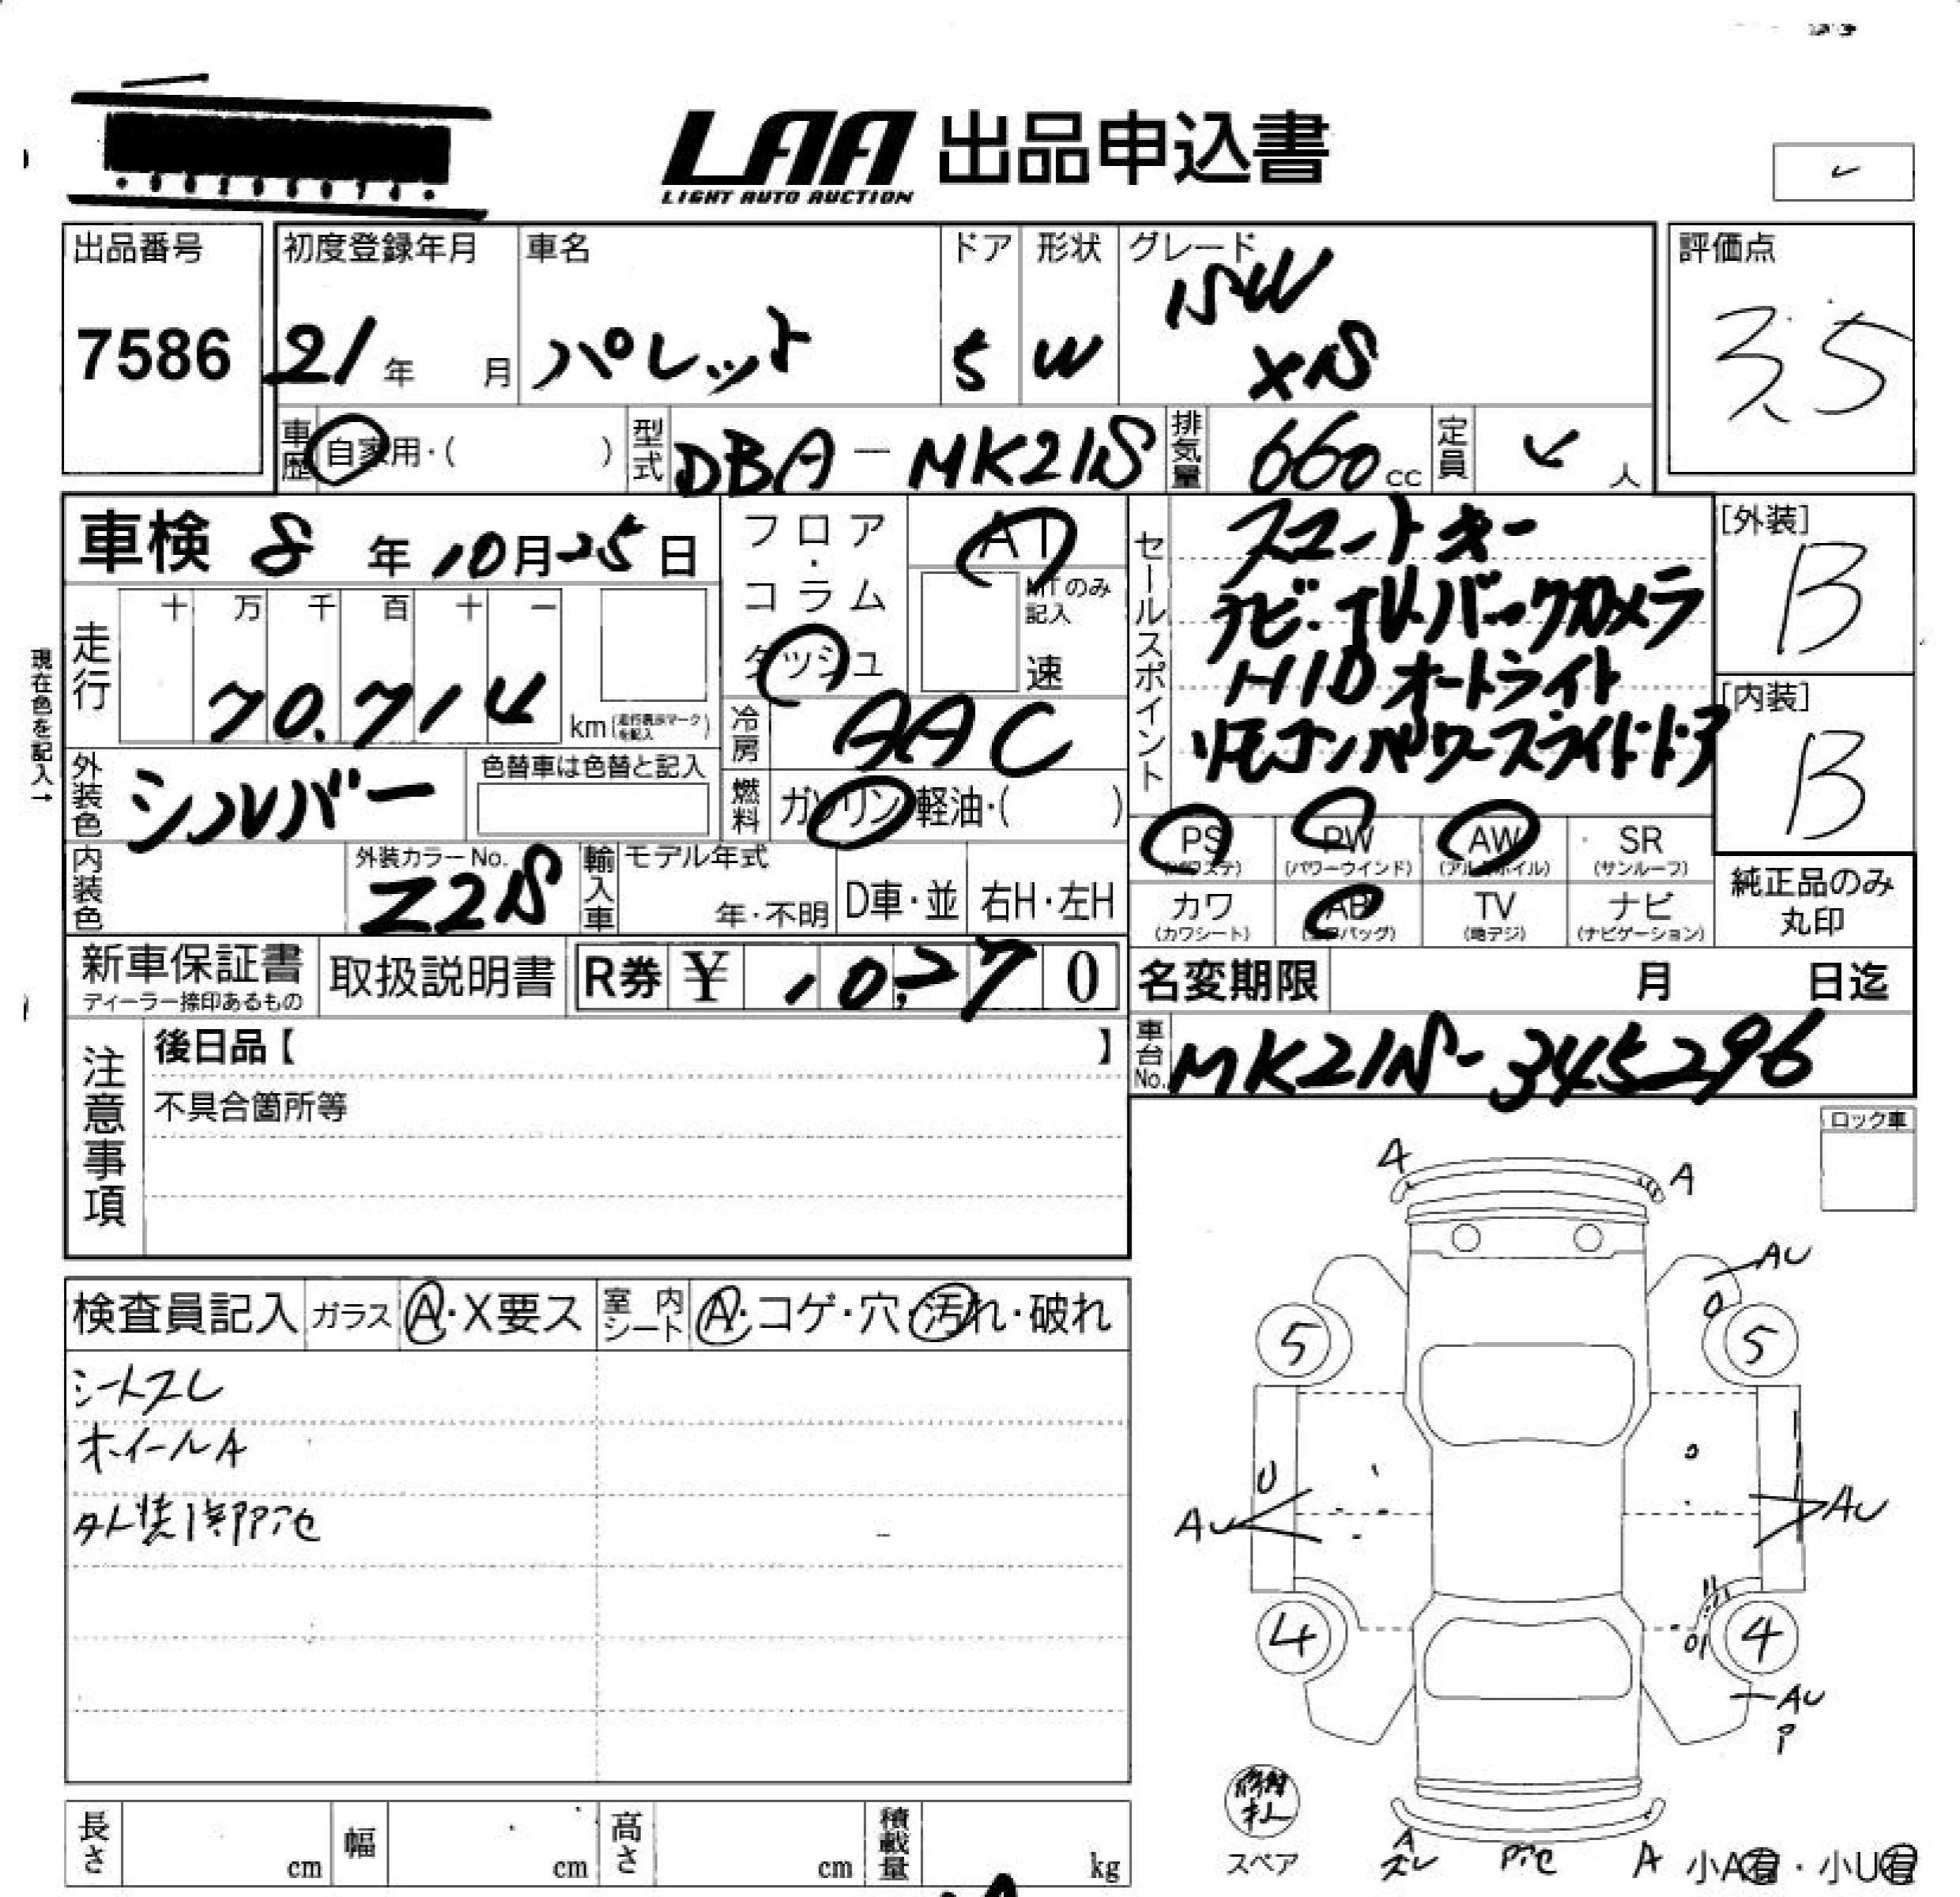 LAA 出品申込書
LIGHT AUTO AUCTION
出品番号 初度登録年月 車名 ドア 形状 グレード 評価点
7586 21年 月 パレット 5 W SW XS 3.5
車歴 自家用・( ) 型式 DBA-MK21S 排気量 660cc 定員 4人
車検 8年10月25日 フロア・コラム ダッシュ AT MTのみ記入 速
セールスポイント
スマートキー
ナビ・TV・バックカメラ
HIDオートライト
リモコンパワースライドドア
[外装] B
[内装] B
現在色を記入→
走行 十 万 千 百 十 一
70.714 km(走行表示マークを記入)
冷房 AAC
外装色 シルバー 色替車は色替と記入
燃料 ガソリン・軽油・( )
PS(パワステ) PW(パワーウインド) AW(アルミホイル) SR(サンルーフ)
内装色 外装カラーNo. Z2S 輸入車 モデル年式 年・不明 D車・並 右H・左H
カワ(カワシート) AB(エアバッグ) TV(地デジ) ナビ(ナビゲーション)
純正品のみ丸印
新車保証書 ディーラー捺印あるもの 取扱説明書 R券 ¥ 10,270
名変期限 月 日迄
車台No. MK21S-345296
注意事項
後日品【 】
不具合箇所等
ロック車
検査員記入 ガラス A・X要ス 室内シート A・コゲ・穴・汚れ・破れ
シートスレ
ホイールA
外装1部P色
A A
AU
5 5
U
AU AU
4 4
AU
P
修剤
スペア
A
スレ P色 A 小A有・小U有
長さ cm 幅 cm 高さ cm 積載量 kg